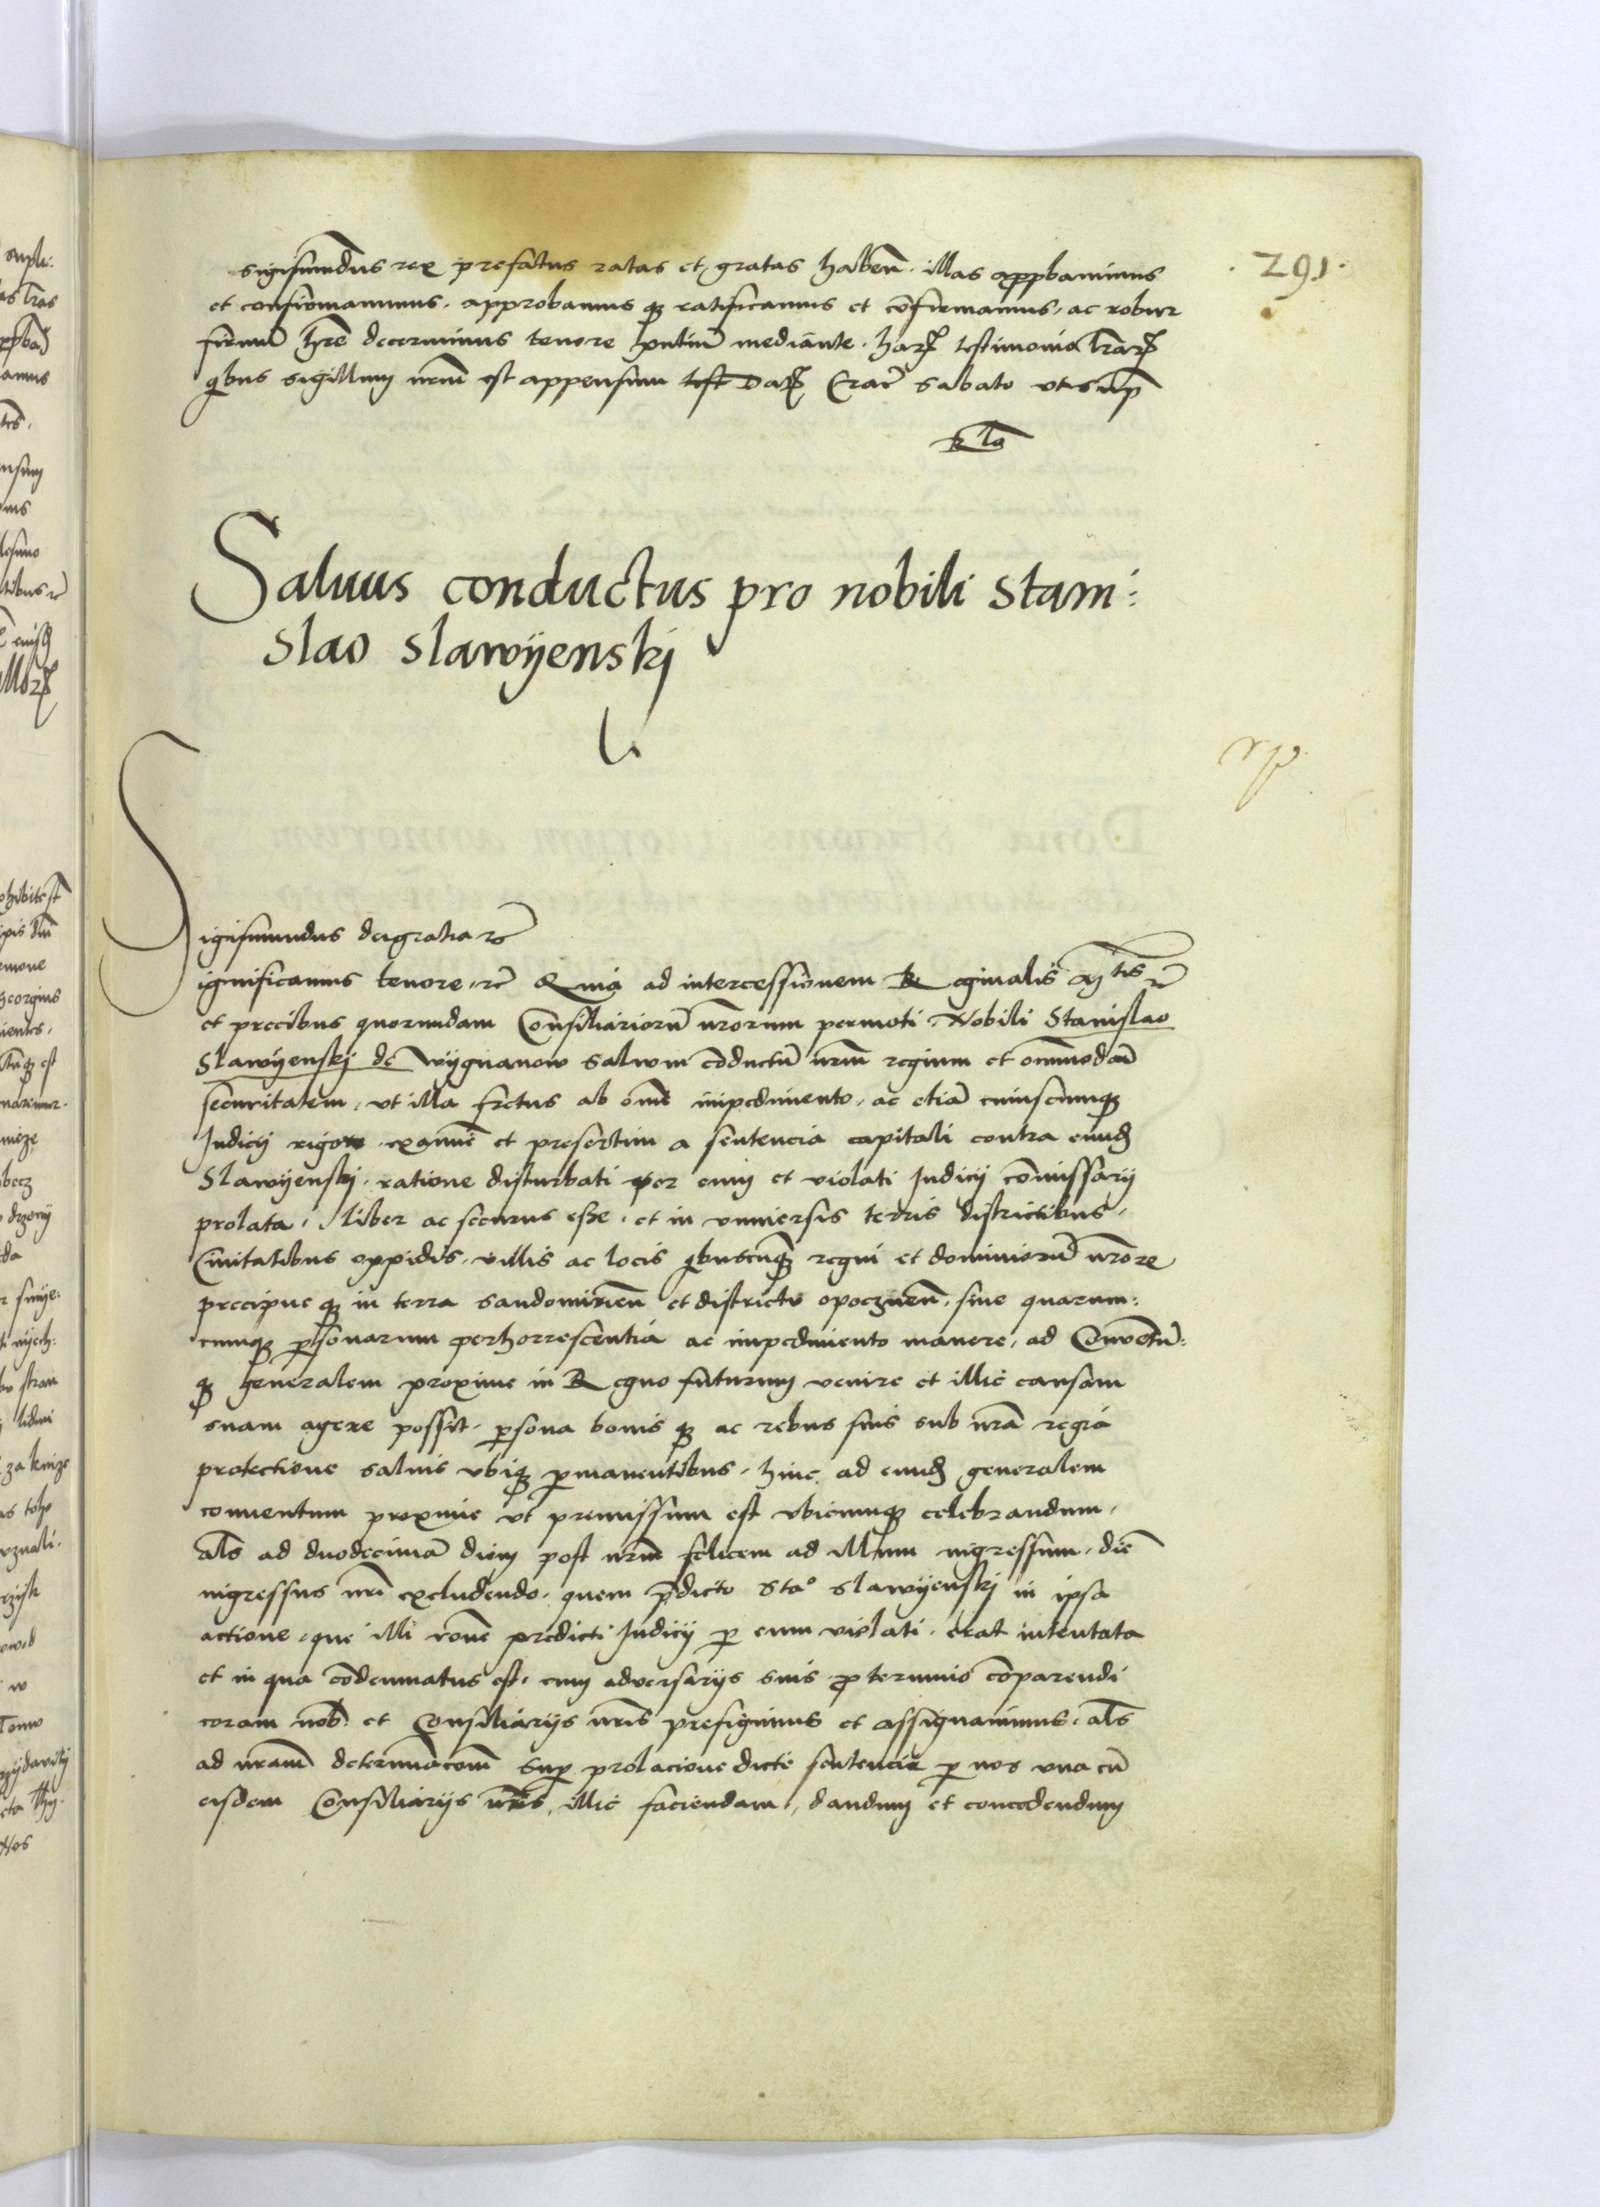 . 291 .
Sigismundus rex prefatus ratas et gratas haben̄. illas approbamimus
et confirmamus. approbamus q[ue] ratificamus et cōfirmamus, ac robur
firmū hr̄e decernimus tenore pn̄tiū mediante. harꝝ testimonio lr̄arꝝ
q̇bus sigillum nr̄m est appensum Datꝝ Crac̄ Sabato vt sup̄
Saluus conductus pro nobili Stani:
slao Slawyenskj
Sigismundus dei gratia ꝛc̄
Significamus tenore ꝛc̄ Quia ad intercessionem Reginalis Mtis ꝛc̄
et precibus quorundam Consiliariorū nr̄orum permoti. Nobili Stanislao
Slawyenskj de Wygnanow saluum cōductū nr̄m regium et om̄modam̄
securitatem, vt illa fretus ab om̄e impedimento, ac etiā cuiuscumqꝫ
Judicij rigore examīe et presertim a sentencia capitali contra eund̄
Slawyenskj. ratione disturbati per eum et violati Judicij cōmissarij
prolata, liber ac securus esse, et in vniuersis terris districtibus,
Ciuitatibus oppidis, villis ac locis q̇buscūqꝫ regni et dominiorū nr̄ore
precipue qꝫ in terra Sandomirien̄ et districtu opocznen̄, sine quarum:
cumqꝫ ꝑsonarum perhorrescentia ac impedimento manere, ad Conuentū:
qꝫ generalem proxime in Regno futurum venire et illic causam
suam agere possit. ꝑsona bonis qꝫ ac rebus suis sub nr̄a regia
protectione saluis vbiqꝫ ꝑmanentibus. hinc ad eund̄ generalem
conuentum proxime vt premissum est vbicumqꝫ celebrandum,
al̄s ad duodecimā diem post nr̄m felicem ad illum ingressum, diē
ingressus nr̄i excludendo, quem p̄dicto Sta° Slawyenskj in ipsa
actione, que illi rōne predicti Judicij ꝑ eum violati, erat intentata
et in qua cōdemnatus est, cum adversarijs suis ꝓ termino cōparendi
coram nob̄ et Consiliarijs nr̄is prefigimus et assignauimus, al̄s
ad nr̄am determinacōm suꝑ prolacione dicte sentencie ꝑ nos vna cū
eisdem Consiliarijs nr̄is, illic faciendam, dandum et concedendum